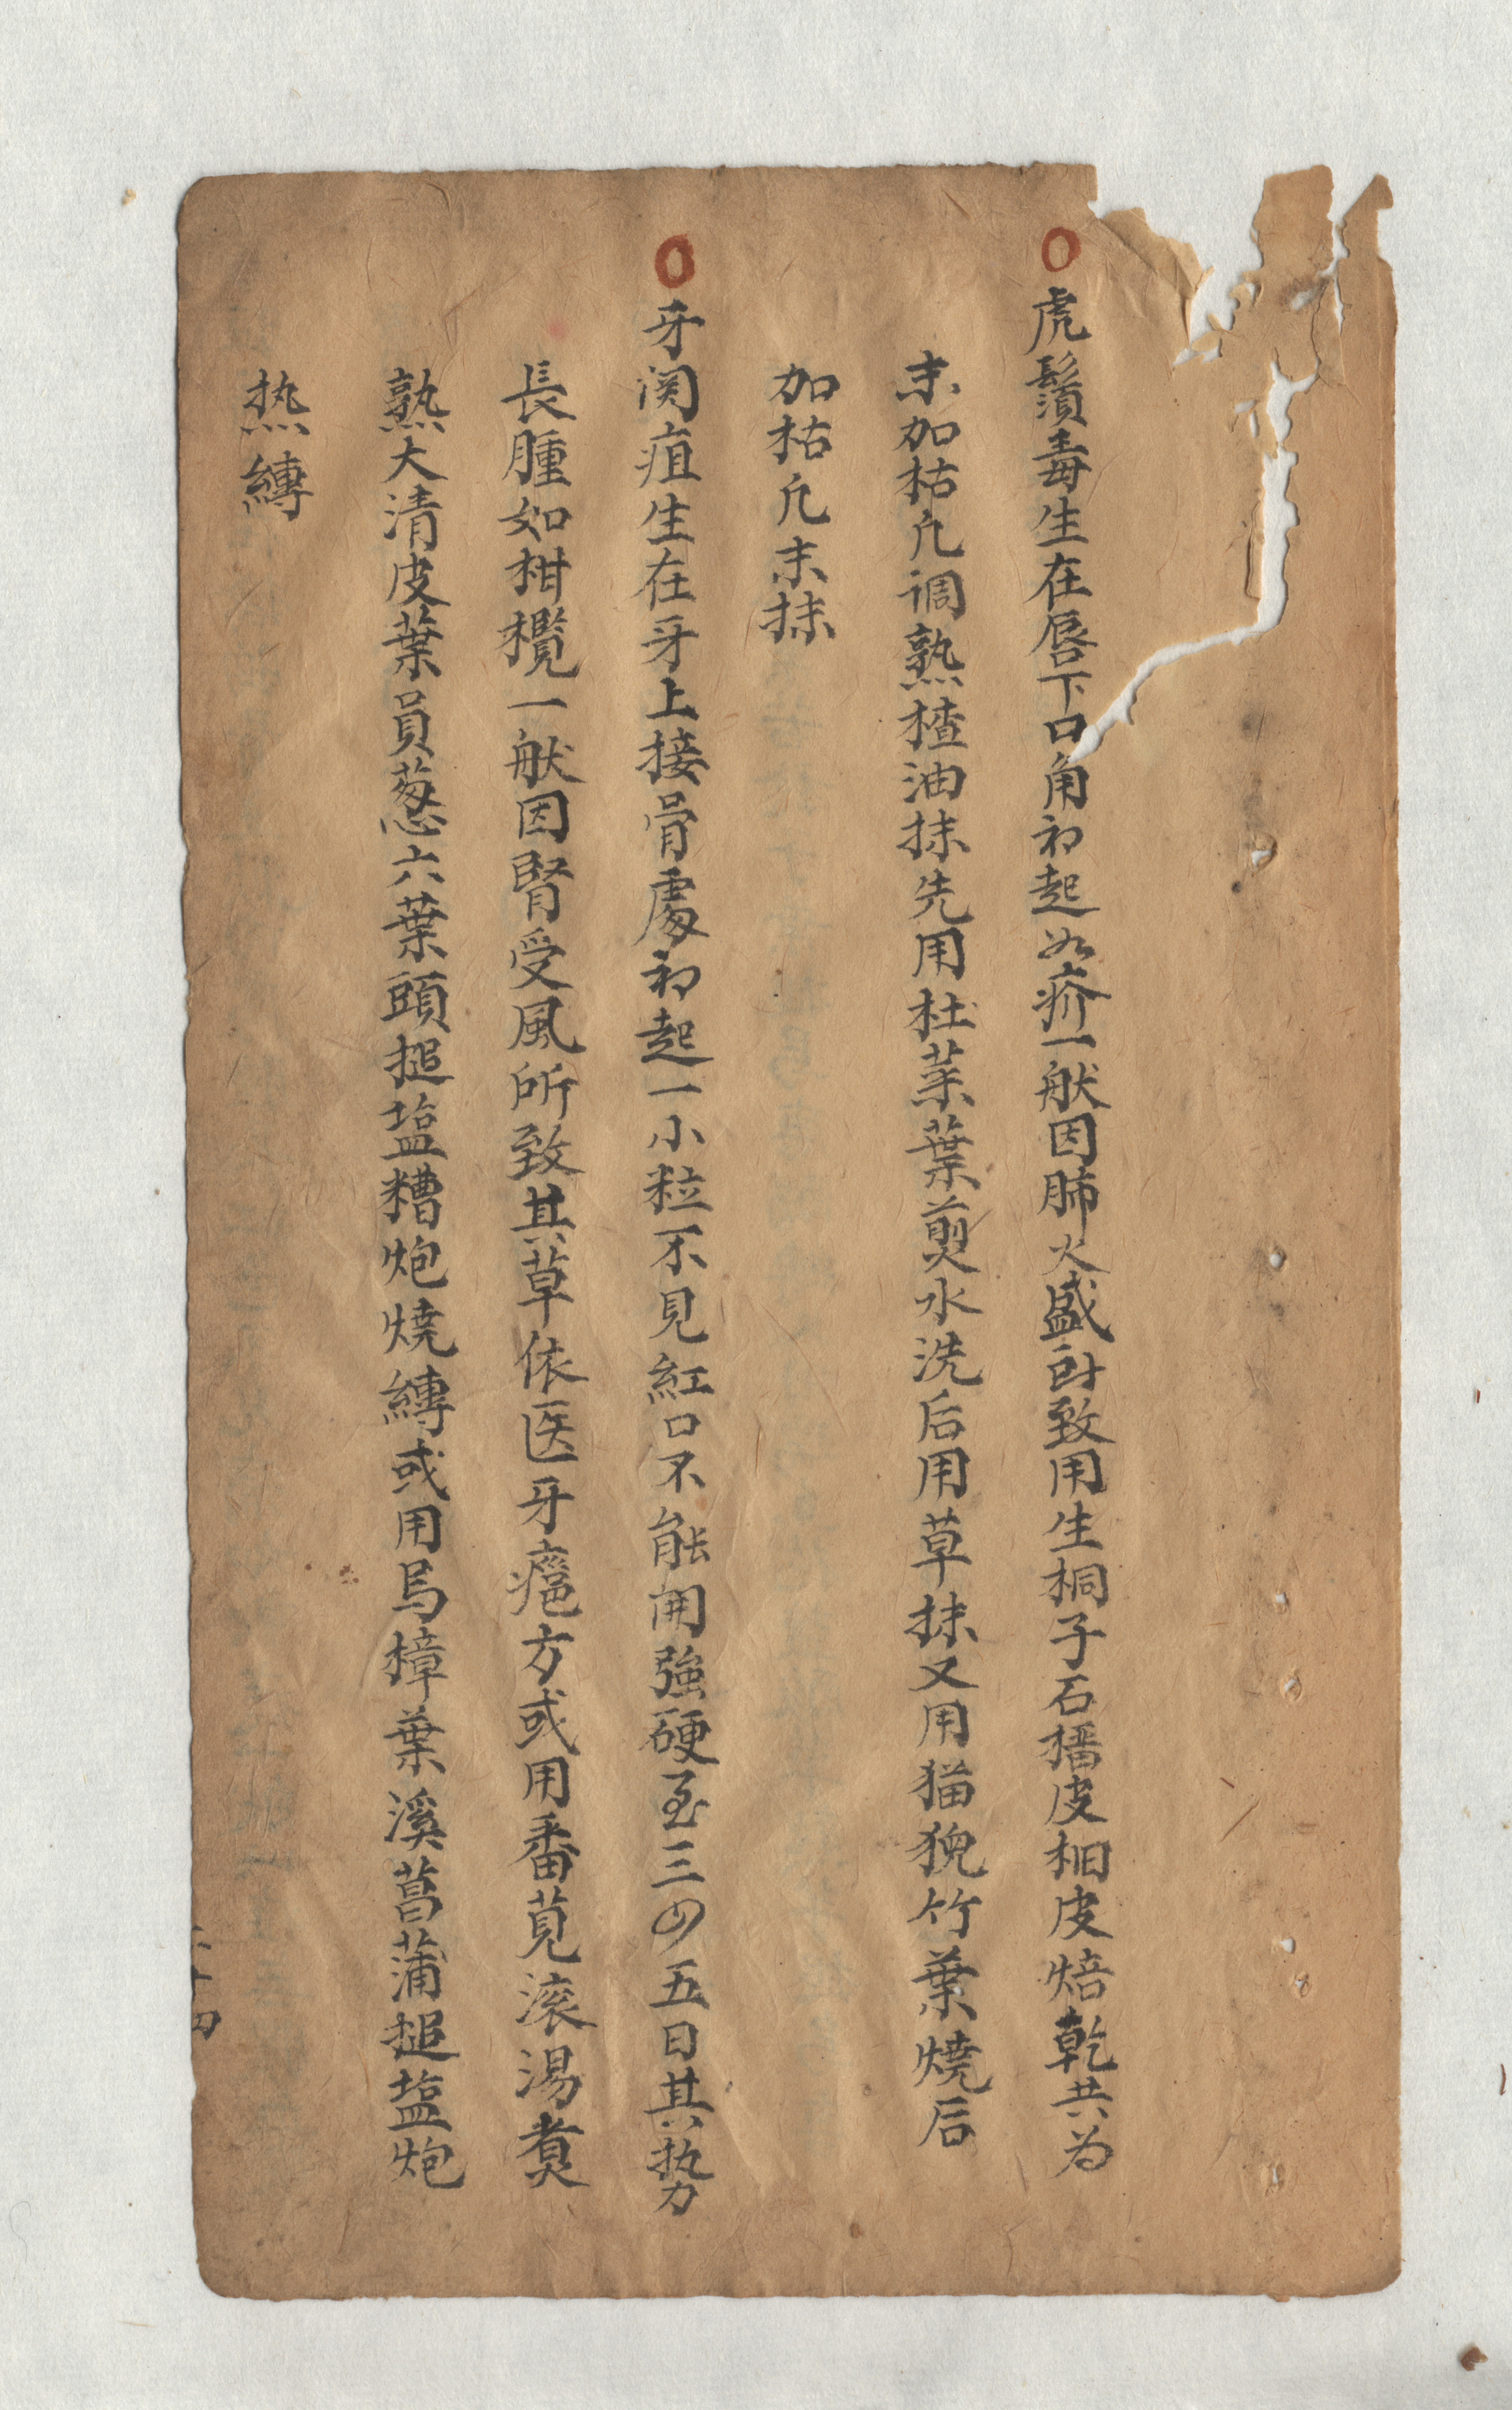 ○虎鬚毒生在唇下口角初起如疥一般因肺火盛所致用生桐子石榴皮柏皮焙乾共为
末加枯凡调熟楂油抹先用杜茶葉煎水洗后用草抹又用猫猊竹葉燒后
加枯凡末抹
○牙関疽生在牙上接骨處初起一小粒不見紅口不能開強硬至三四五日其势
長腫如柑欖一般因腎受風所致其草依医牙癰方或用番莧滚湯煑
熟大清皮葉員葱六葉頭搥塩糟炮燒縛或用烏樟葉溪菖蒲搥塩炮
热縛